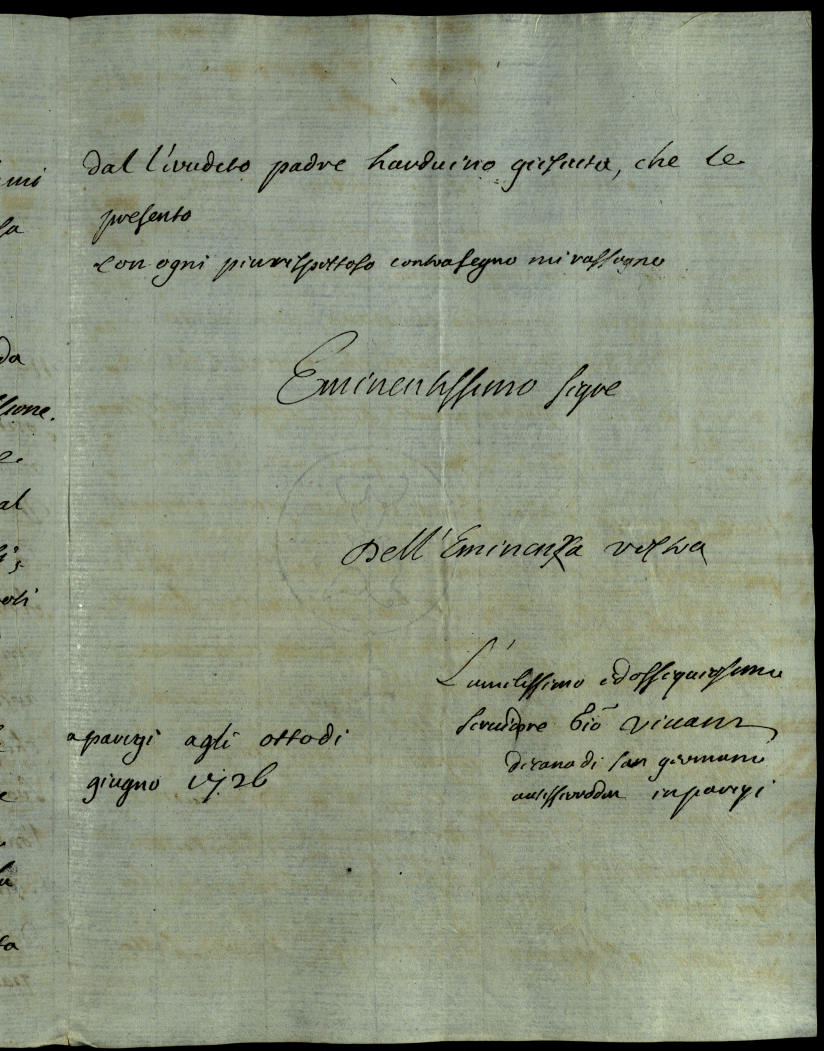 dal l'erudito padre harduino giesuita, che le
presento
con ogni piu rispettoso contrasegno mi rassegno
Eminentissimo sigre
Dell'Eminenza vostra
L'umilissimo ed ossequiosissimo
servidore Gio Vivant
decano di san germano
in parigi
a parigi agli otto di
giugno 1726